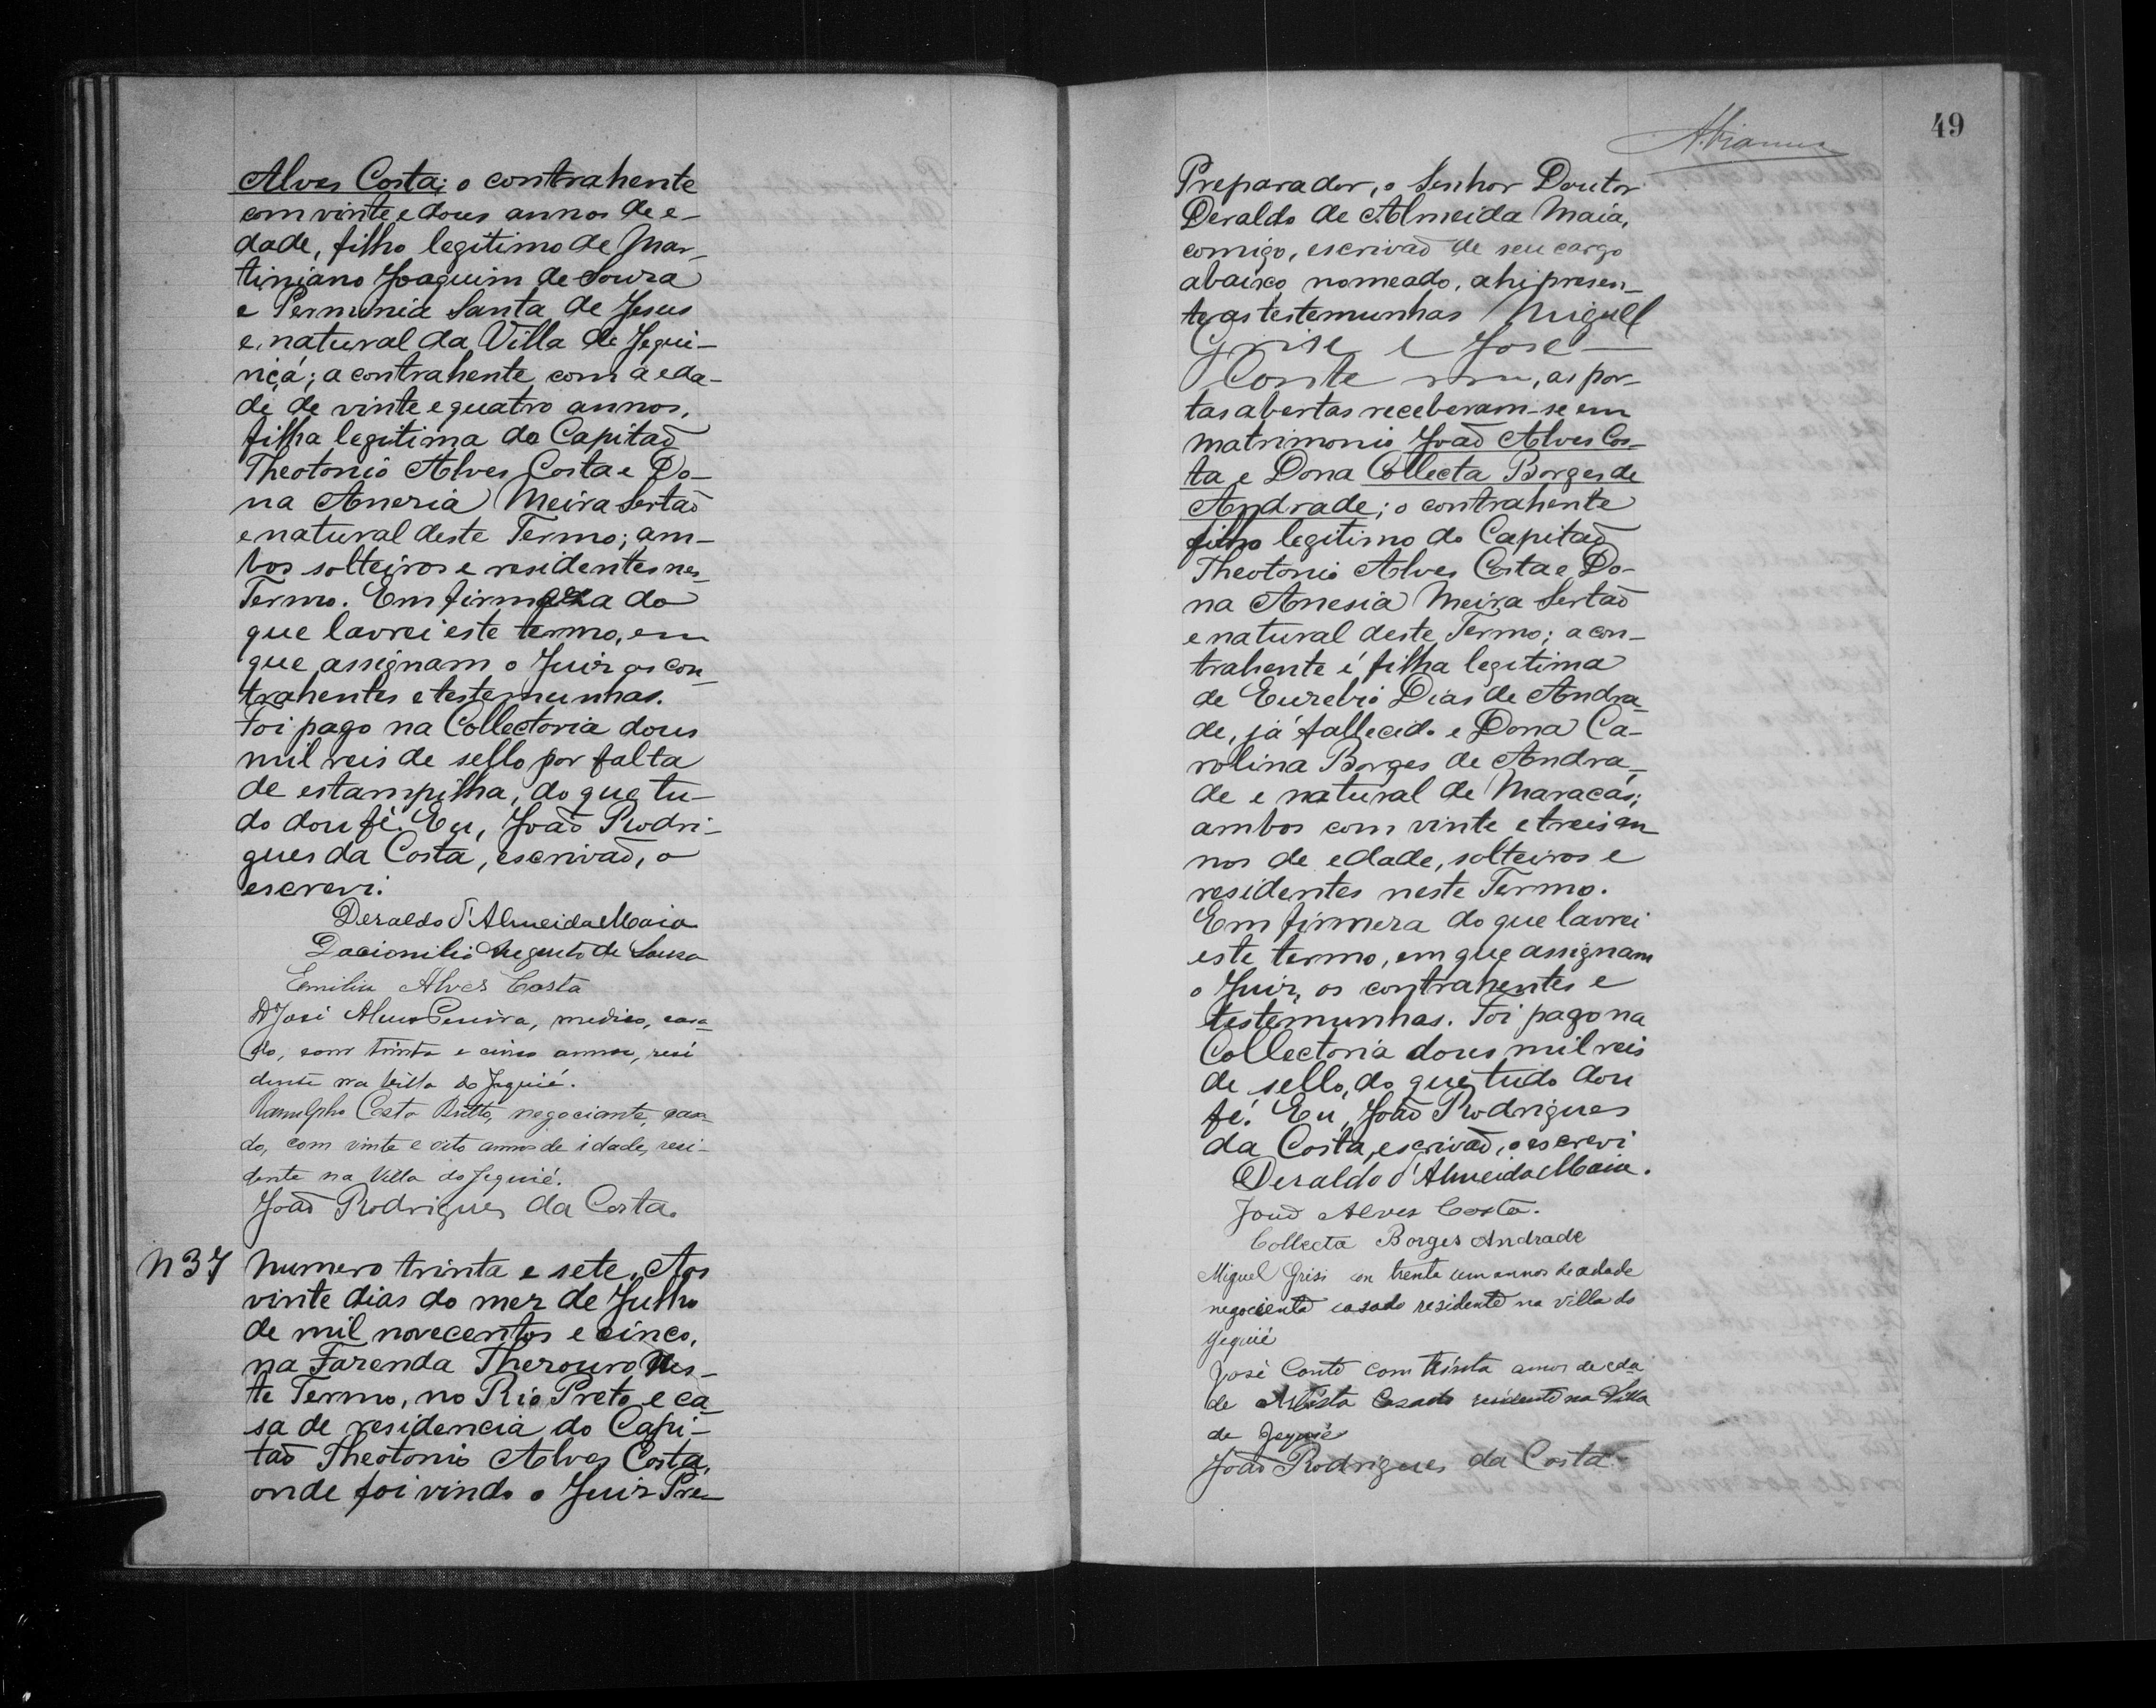 Alves Costa; o contrahente
com vinte e dous annos de e-
dade, filho legitimo de Mar-
tiniano Joaquim de Souza
e Perminia Santa de Jesus
e natural da Villa de Jequi-
riçá; a contrahente com a eda-
de de vinte e quatro annos,
filha legitima do Capitaõ
Theotonio Alves Costa e Do-
na Anezia Meira Sertaõ
e natural deste Termo; am-
bos solteiros e residentes nes-
Termo. Em firmeza do
que lavrei este termo, em
que assignam o Juiz os con-
trahentes e testemunhas.
Foi pago na Collectoria dous
mil reis de sello por falta
de estampilha, do que tu-
do dou fé. Eu, Joaõ Rodri-
gues da Costa, escrivaõ, o
escrevi.
Deraldo d'Almeida Maia
Dacionilio de Souza
Emilia Alves Costa
Dr José Alves Pereira, medico, casa-
do, com trinta e cinco annos, resi
dente na Villa do Jequié.
Ranulpho Costa Britto, negociante, casa-
do, com vinte e oito annos de idade, resi-
dente na Villa do Jequié.
Joaõ Rodrigues da Costa.
N 37 Numero trinta e sete. Aos
vinte dias do mez de Julho
de mil novecentos e cinco,
na Fazenda Thezouro des-
te Termo, no Rio Preto e ca-
sa de residencia do Capi-
taõ Theotonio Alves Costa,
onde foi vindo o Juiz Pre-
49
Preparador, o Senhor Doutor
Deraldo de Almeida Maia,
comigo, escrivaõ de seu cargo
abaixo nomeado, ahi presen-
te as testemunhas Miguel
Grise e José
Conte, as por-
tas abertas receberam-se em
matrimonio Joaõ Alves Cos-
ta e Dona Collecta Borges de
Andrade; o contrahente
filho legitimo do Capitaõ
Theotonio Alves Costa e Do-
na Anesia Meira Sertaõ
e natural deste Termo; a con-
trahente é filha legitima
de Euzebio Dias de Andra-
de, já fallecido e Dona Ca-
rolina Borges de Andra-
de e natural de Maracás;
ambos com vinte e treis an
nos de edade, solteiros e
residentes neste Termo.
Em firmeza do que lavrei
este termo, em que assignam
o Juiz, os contrahentes e
testemunhas. Foi pago na
Collectoria dous mil reis
de sello, do que tudo dou
fé. Eu, Joaõ Rodrigues
da Costa, escrivaõ, o escrevi
Deraldo d'Almeida Maia.
Joaõ Alves Costa.
Collecta Borges Andrade
Miguel Grisi con trenta um annos de edade
negociente casado residente na villa do
Jequié
José Conte com trinta annos de eda
de Artista Casado residente na Villa
de Jequié
Joaõ Rodrigues da Costa